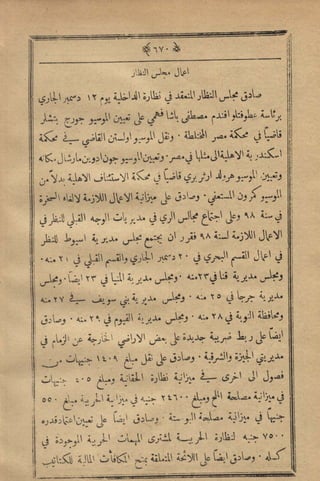 ﴿٦٧٠﴾
اعمال مجلس النظار
صادق مجلس النظار المنعقد في نظارة الداخلية يوم ١٢ دسمبر الجاري
برئاسة عطوفتلو افندم مصطفى باشا فهمي على تعيين الموسيو جورج ينتشلر
قاضيًا في محكمة مصر المختلطة ٠ ونقل الموسيو اولستن القاضي في محكمة
اسكندرية الاهلية الى مثلها في مصر ٠ وتعيين الموسيو جون ادوين مارشال مكانه
وتعيين الموسيو هرولد ارثر بري قاضيًا في محكمة الاستئناف الاهلية بدلاً من
الموسيو كرون المستعفي ٠ وصادق على ميزانية الاعمال اللازمة لالغاء السخرة
في سنة ٩٨ وعلى اجتماع مجالس الري في مديريات الوجه القبلي للنظر في
الاعمال اللازمة لسنة ٩٨ فقرر ان يجتمع مجلس مديرية اسيوط للنظر
في اعمال القسم البحري في ٢٠ دسمبر الجاري والقسم القبلي في ٢١ منه ٠
ومجلس مديرية قنا في ٢٣ منه ٠ ومجلس مديرية المنيا في ٢٣ ايضًا ٠ ومجلس
مديرية جرجا في ٢٥ منه ٠ ومجلس مديرية بني سويف في ٢٧ منه
ومحافظة النوبة في ٢٨ منه ٠ ومجلس مديرية الفيوم في ٢٩ منه ٠ وصادق
ايضًا على ربط ضريبة جديدة على بعض الاراضي الخارجة عن الزمام في
مديريتي الجيزة والشرقية ٠ وصادق على نقل مبلغ ١٤٠٩ جنيهات من
فصول الى اخرى في ميزانية نظارة الحقانية ومبلغ ٤٠٥ جنيهات
في ميزانية مصلحة الملح ومبلغ ٢٤٦٠٠ جنيه في ميزانية الحربية ومبلغ ٥٥٠
جنيهًا في ميزانية مصلحة البوستة ٠ وصادق ايضًا على تعيين اعتماد قدره
٧٥٠٠ جنيه لنظارة الحربية لمشترى المهمات الحربية الموجودة في
كسله ٠ وصادق ايضًا على اللائحة المتعلقة بمنح المكافآت المالية للكتاتيب